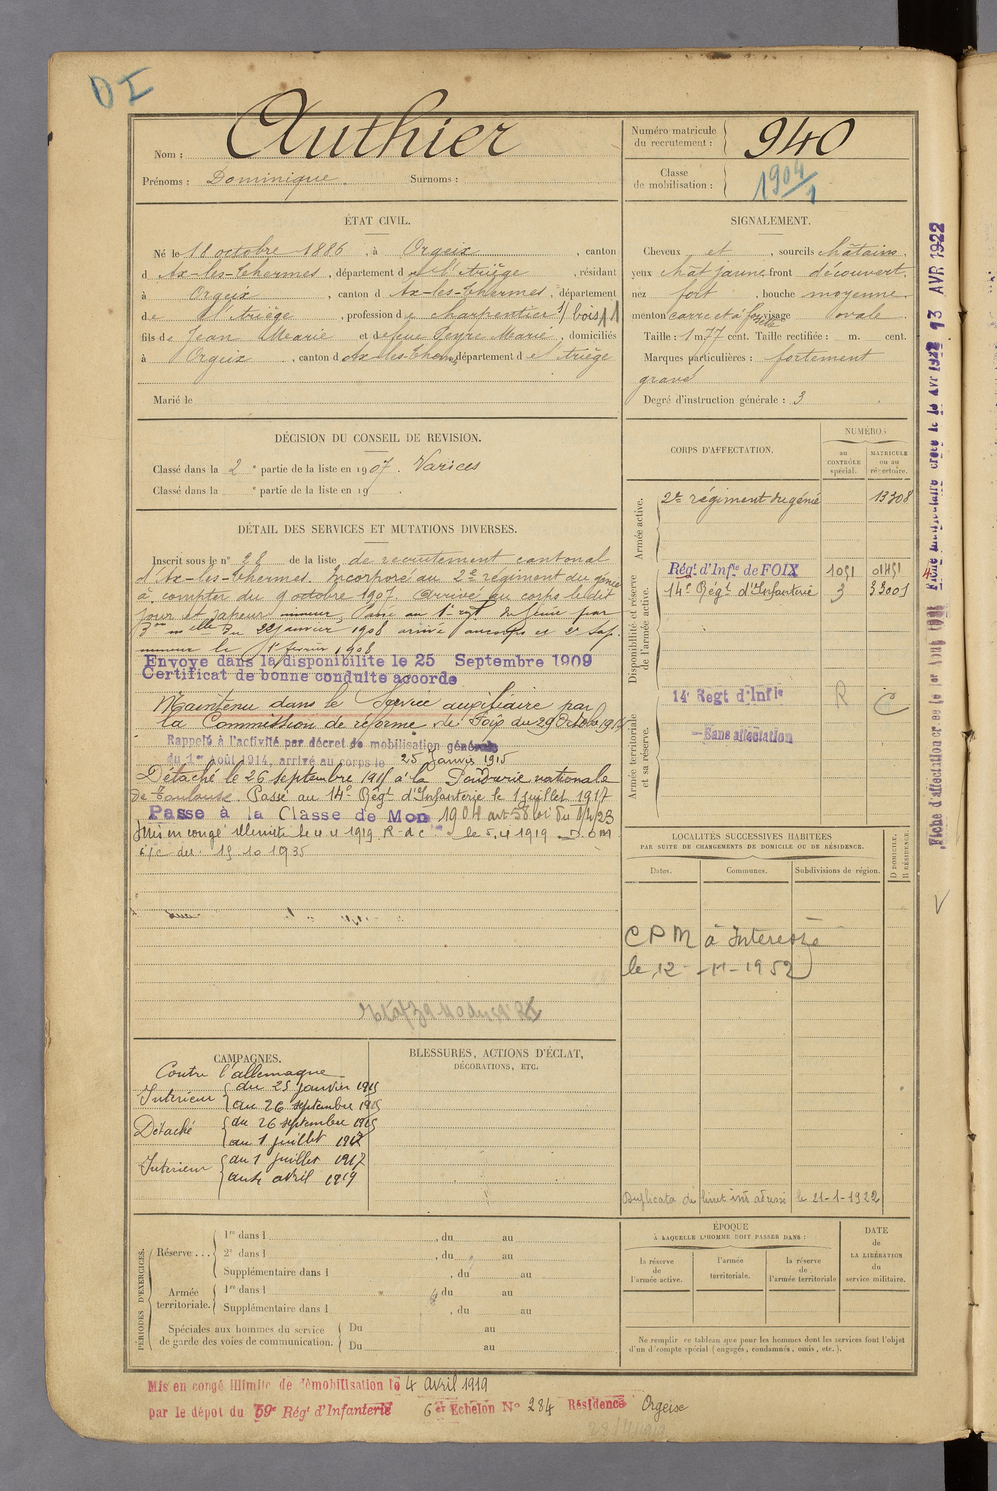 DI
Nom : Authier
Prénoms : Dominique. Surnoms :
Numéro matricule du recrutement : 940
Classe de mobilisation : 1904/1
ÉTAT CIVIL.
Né le 18 octobre 1886, à Orgeix, canton
d'Ax-les-Thermes, département de l'Ariège, résidant
à Orgeix, canton d'Ax-les-Thermes, département
de l'Ariège, profession de charpentier s/ bois 11
fils de Jean Marie et de feue Peyre Marie, domiciliés
à Orgeix, canton d'Ax-les-Thermes, département de l'Ariège
Marié le
SIGNALEMENT.
Cheveux et, sourcils châtains.
yeux chât jaune front découvert,
nez fort, bouche moyenne.
menton carré et à fossette visage ovale.
Taille : 1 m. 77 cent. Taille rectifiée : m. cent.
Marques particulières : fortement
gravé
Degré d'instruction générale : 3
DÉCISION DU CONSEIL DE REVISION.
Classé dans la 2e partie de la liste en 1907. Varices
Classé dans la e partie de la liste en 19 .
DÉTAIL DES SERVICES ET MUTATIONS DIVERSES.
Inscrit sous le n° 28 de la liste de recrutement cantonal
d'Ax-les-Thermes. Incorporé au 2e régiment du génie
à compter du 9 octobre 1907. Arrivé au corps le dit
jour et sapeur mineur, Passé au 1er régt de Génie par
du 22 janvier 1908 arrivé au corps et 2e Sap.
mineur le 1er février 1908
Envoyé dans la disponibilité le 25 Septembre 1909
Certificat de bonne conduite accordé
Maintenu dans le Service auxiliaire par
la Commission de réforme de Foix du 29 Octobre 1914
Rappelé à l'activité par décret de mobilisation générale
du 1er août 1914, arrivé au corps le 25 Janvier 1915
Détaché le 26 septembre 1915 à la Poudrerie nationale
de Toulouse Passé au 14e Régt d'Infanterie le 1 juillet 1917
Passé à la Classe de Mon 1904 art 58 loi du 1/4/23
Mis en congé illimité le 4 4 1919. R-d-c le 5.4 1919 D.O.M
15 10 1935
CORPS D'AFFECTATION.
NUMÉROS
au CONTRÔLE spécial.
MATRICULE ou au répertoire.
Armée active.
2e régiment du génie 13308
Disponibilité et réserve de l'armée active.
Régt d'Infie de FOIX 1051 01451
14e Régt d'Infanterie 3 33001
Armée territoriale et sa réserve.
14e Regt d'Infie R C
Sans affectation
LOCALITÉS SUCCESSIVES HABITÉES
PAR SUITE DE CHANGEMENTS DE DOMICILE OU DE RÉSIDENCE.
Dates. Communes. Subdivisions de région.
D DOMICILE.
R RÉSIDENCE.
CPM à Interessé
le 12-11-1952
Duplicata du livret adressé le 21-1-1922
CAMPAGNES.
Contre l'allemagne
Intérieur { du 25 janvier 1915
au 26 septembre 1915
Détaché { du 26 septembre 1915
au 1 juillet 1917
Intérieur { du 1 juillet 1917
au 4 avril 1919
BLESSURES, ACTIONS D'ÉCLAT,
DÉCORATIONS, ETC.
PÉRIODES D'EXERCICES.
Réserve... 1re dans l , du au
2e dans l , du au
Supplémentaire dans l , du au
Armée territoriale. 1re dans l , du au
Supplémentaire dans l , du au
Spéciales aux hommes du service de garde des voies de communication. Du au
Du au
ÉPOQUE
À LAQUELLE L'HOMME DOIT PASSER DANS :
la réserve de l'armée active.
l'armée territoriale.
la réserve de l'armée territoriale
DATE de LA LIBÉRATION du service militaire.
Ne remplir ce tableau que pour les hommes dont les services font l'objet
d'un décompte spécial (engagés, condamnés, omis, etc.).
Mis en congé illimité de démobilisation le 4 avril 1919
par le dépot du 59e Régt d'Infanterie 6e Echelon N° 284 Résidence Orgeix
13 AVR 1922